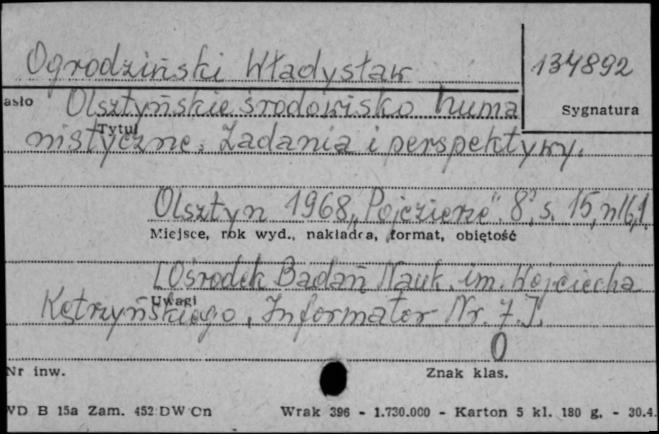 Ogrodziński Władysław
134892
asło
Olsztyńskie środowisko huma
Sygnatura
Tytuł
nistyczne. Zadania i perspektywy.
Olsztyn 1968 „Pojezierze" 8°, s. 15,
Miejsce, rok wyd., nakładca, format, objętość
[Ośrodek Badań Nauk. im. Wojciecha
Uwagi
Kętrzyńskiego, Informator Nr. 7.].
0
Nr inw.
Znak klas.
VD B 15a Zam. 452 DW Cn Wrak 396 - 1.730.000 - Karton 5 kl. 180 g. - 30.4.